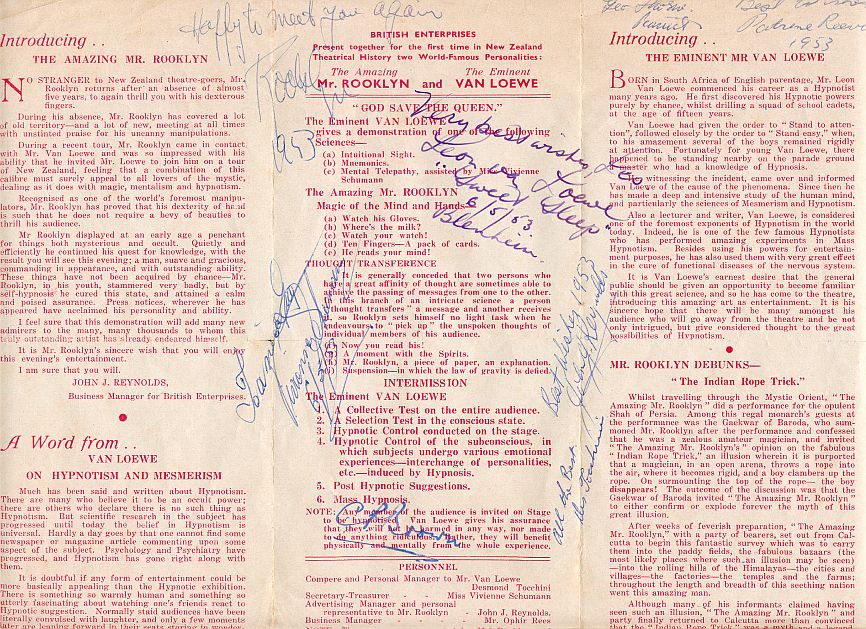 Happy to meet you again
Rooklyn
1953
Geo
Pianist
Best
1953
Introducing . .
THE AMAZING MR. ROOKLYN
NO STRANGER to New Zealand theatre-goers, Mr.
Rooklyn returns after an absence of almost
five years, to again thrill you with his dexterous
fingers.
During his absence, Mr. Rooklyn has covered a lot
of old territory—and a lot of new, meeting at all times
with unstinted praise for his uncanny manipulations.
During a recent tour, Mr. Rooklyn came in contact
with Mr. Van Loewe and was so impressed with his
ability that he invited Mr. Loewe to join him on a tour
of New Zealand, feeling that a combination of this
calibre must surely appeal to all lovers of the mystic,
dealing as it does with magic, mentalism and hypnotism.
Recognised as one of the world's foremost manipu-
lators, Mr. Rooklyn has proved that his dexterity of hand
is such that he does not require a bevy of beauties to
thrill his audience.
Mr Rooklyn displayed at an early age a penchant
for things both mysterious and occult. Quietly and
efficiently he continued his quest for knowledge, with the
result you will see this evening; a man, suave and gracious,
commanding in appearance, and with outstanding ability.
These things have not been acquired by chance—Mr.
Rooklyn, in his youth, stammered very badly, but by
self-hypnosis he cured this state, and attained a calm
and poised assurance. Press notices, wherever he has
appeared have acclaimed his personality and ability.
I feel sure that this demonstration will add many new
admirers to the many, many thousands to whom this
truly outstanding artist has already endeared himself.
It is Mr. Rooklyn's sincere wish that you will enjoy
this evening's entertainment.
I am sure that you will.
JOHN J. REYNOLDS,
Business Manager for British Enterprises.
A Word from . .
VAN LOEWE
ON HYPNOTISM AND MESMERISM
Much has been said and written about Hypnotism.
There are many who believe it to be an occult power;
there are others who declare there is no such thing as
Hypnotism. But scientific research in the subject has
progressed until today the belief in Hypnotism is
universal. Hardly a day goes by that one cannot find some
newspaper or magazine article commenting upon some
aspect of the subject. Psychology and Psychiatry have
progressed, and Hypnotism has gone right along with
them.
It is doubtful if any form of entertainment could be
more basically appealing than the Hypnotic exhibition.
There is something so warmly human and something so
utterly fascinating about watching one's friends react to
Hypnotic suggestion. Normally staid audiences have been
literally convulsed with laughter, and only a few moments
later are leaning forward in their seats staring in wonder
BRITISH ENTERPRISES
Present together for the first time in New Zealand
Theatrical History two World-Famous Personalities:
The Amazing The Eminent
Mr. ROOKLYN and VAN LOEWE
"GOD SAVE THE QUEEN."
The Eminent VAN LOEWE
gives a demonstration of one of the following
Sciences—
(a) Intuitional Sight.
(b) Mnemonics.
(c) Mental Telepathy, assisted by Miss Vivienne
Schumann
The Amazing Mr. ROOKLYN
Magic of the Mind and Hands—
(a) Watch his Gloves.
(b) Where's the milk?
(c) Watch your watch!
(d) Ten Fingers—A pack of cards.
(e) He reads your mind!
THOUGHT TRANSFERENCE
It is generally conceded that two persons who
have a great affinity of thought are sometimes able to
achieve the passing of messages from one to the other.
In this branch of an intricate science a person
"thought transfers" a message and another receives
it, so Rooklyn sets himself no light task when he
endeavours to "pick up" the unspoken thoughts of
individual members of his audience.
Now you read his!
A moment with the Spirits.
Mr. Rooklyn, a piece of paper, an explanation.
Suspension—in which the law of gravity is defied.
INTERMISSION
The Eminent VAN LOEWE
1. A Collective Test on the entire audience.
2. A Selection Test in the conscious state.
3. Hypnotic Control conducted on the stage.
4. Hypnotic Control of the subconscious, in
which subjects undergo various emotional
experiences—interchange of personalities,
etc.—induced by Hypnosis.
5. Post Hypnotic Suggestions.
6. Mass Hypnosis.
NOTE: Any member of the audience is invited on Stage
to be hypnotised. Van Loewe gives his assurance
that they will not be harmed in any way, nor made
to do anything ridiculous. Rather, they will benefit
physically and mentally from the whole experience.
PERSONNEL
Compere and Personal Manager to Mr. Van Loewe
Desmond Tocchini
Secretary-Treasurer - Miss Vivienne Schumann
Advertising Manager and personal
representative to Mr. Rooklyn - John J. Reynolds.
Business Manager - Mr. Ophir Rees
Very best wishes
Leon Van Loewe
"Sweet Sleep"
6/5/53.
Blenheim.
Vivienne Schumann
Best Wishes
All the Best
Introducing . .
THE EMINENT MR VAN LOEWE
BORN in South Africa of English parentage, Mr. Leon
Van Loewe commenced his career as a Hypnotist
many years ago. He first discovered his Hypnotic powers
purely by chance, whilst drilling a squad of school cadets,
at the age of fifteen years.
Van Loewe had given the order to "Stand to atten-
tion", followed closely by the order to "Stand easy," when,
to his amazement several of the boys remained rigidly
at attention. Fortunately for young Van Loewe, there
happened to be standing nearby on the parade ground
master who had a knowledge of Hypnosis.
witnessing the incident, came over and informed
Van Loewe of the cause of the phenomena. Since then he
has made a deep and intensive study of the human mind,
particularly the sciences of Mesmerism and Hypnotism.
Also a lecturer and writer, Van Loewe, is considered
one of the foremost exponents of Hypnotism in the world
today. Indeed, he is one of the few famous Hypnotists
who has performed amazing experiments in Mass
Hypnotism. Besides using his powers for entertain-
ment purposes, he has also used them with very great effect
in the cure of functional diseases of the nervous system.
It is Van Loewe's earnest desire that the general
public should be given an opportunity to become familiar
with this great science, and so he has come to the theatre,
introducing this amazing art as entertainment. It is his
sincere hope that there will be many amongst his
audience who will go away from the theatre and be not
only intrigued, but give considered thought to the great
possibilities of Hypnotism.
MR. ROOKLYN DEBUNKS—
"The Indian Rope Trick."
Whilst travelling through the Mystic Orient, "The
Amazing Mr. Rooklyn" did a performance for the opulent
Shah of Persia. Among this regal monarch's guests at
the performance was the Gaekwar of Baroda, who sum-
moned Mr. Rooklyn after the performance and confessed
that he was a zealous amateur magician, and invited
"The Amazing Mr. Rooklyn's" opinion on the fabulous
"Indian Rope Trick," an illusion wherein it is purported
that a magician, in an open arena, throws a rope into
the air, where it becomes rigid, and a boy clambers up the
rope. On surmounting the top of the rope— the boy
disappears! The outcome of the discussion was that the
Gaekwar of Baroda invited "The Amazing Mr. Rooklyn"
to either confirm or explode forever the myth of this
great illusion.
After weeks of feverish preparation, "The Amazing
Mr. Rooklyn," with a party of bearers, set out from Cal-
cutta to begin this fantastic survey which was to carry
them into the paddy fields, the fabulous bazaars (the
most likely places where such an illusion may be seen)
—into the rolling hills of the Himalayas—the cities and
villages—the factories—the temples and the farms;
throughout the length and breadth of this seething nation
went this amazing man.
Although many of his informants claimed having
seen such an illusion, "The Amazing Mr. Rooklyn" and
party finally returned to Calcutta more than convinced
that the "Indian Rope Trick" was